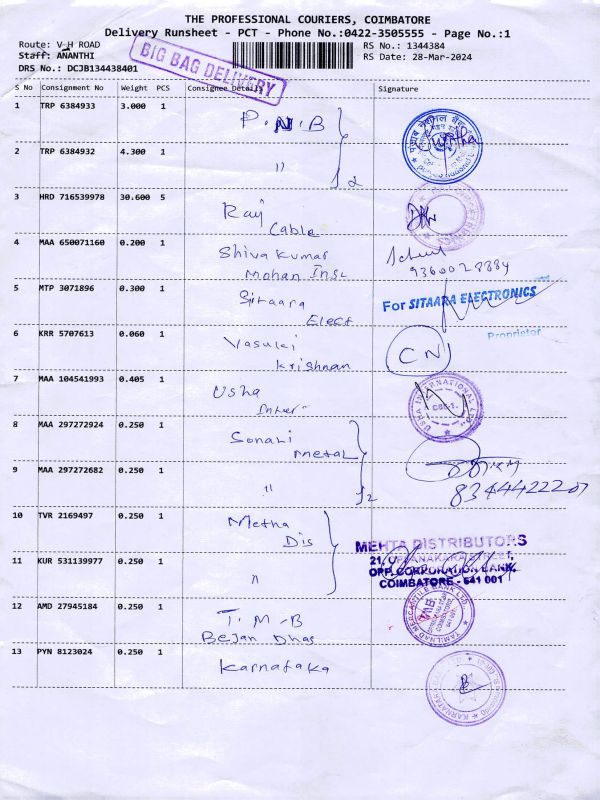 THE PROFESSIONAL COURIERS, COIMBATORE
Delivery Runsheet - PCT - Phone No.:0422-3505555 - Page No.:1
Route: V-H ROAD
RS No.: 1344384
Staff: ANANTHI
RS Date: 28-Mar-2024
DRS No.: DCJB134438401
BIG BAG DELIVERY
S No Consignment No Weight PCS Consignee Details Signature
1 TRP 6384933 3.000 1 P.N.B
2 TRP 6384932 4.300 1 "
2
3 HRD 716539978 30.600 5 Raj
Cable
4 MAA 650071160 0.200 1 Shiva Kumar
Mohan Insl
5 MTP 3071896 0.300 1 Sitaara
Elect
For SITAARA ELECTRONICS
Proprietor
6 KRR 5707613 0.060 1 Vasuki
Krishnan
CN
7 MAA 104541993 0.405 1 Usha
Inter
USHA INTERNATIONAL LTD.
8 MAA 297272924 0.250 1 Sonali
Metal
9 MAA 297272682 0.250 1 "
2
10 TVR 2169497 0.250 1 Metha
Dis
MEHTA DISTRIBUTORS
21, OPPANAKARA STREET,
OPP. CORPORATION BANK,
COIMBATORE - 641 001
11 KUR 531139977 0.250 1 "
12 AMD 27945184 0.250 1 T.M-B
Bejan Dhas
TAMILNAD MERCANTILE BANK LTD.
TMB
COIMBATORE
641 001
13 PYN 8123024 0.250 1 Karnataka